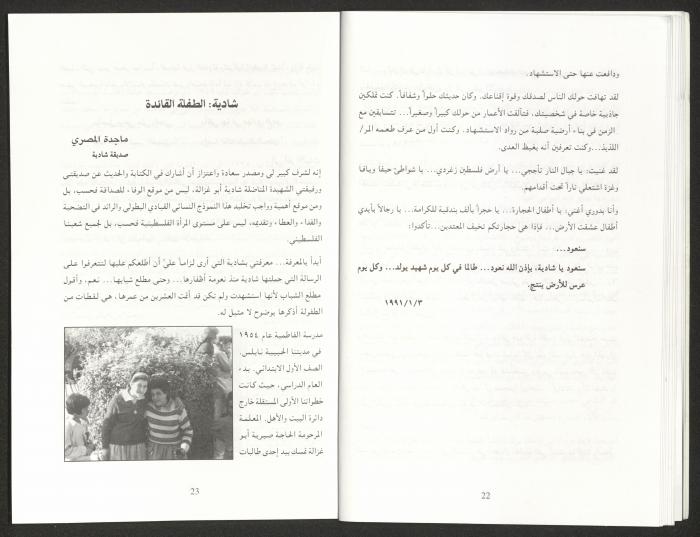 ودافعت عنها حتى الاستشهاد.
لقد تهافت حولك الناس لصدقك وقوة إقناعك. وكان حديثك حلواً وشفافاً. كنت تملكين
جاذبية خاصة في شخصيتك، فتآلفت الأعمار من حولك كبيراً وصغيراً... تتسابقين مع
الزمن في بناء أرضية صلبة من رواد الاستشهاد. وكنت أول من عرف طعمه المر/
اللذيذ...وكنت تعرفين أنه يغيظ العدى.
لقد غنيت: يا جبال النار تأججي... يا أرض فلسطين زغردي... يا شواطئ حيفا ويافا
وغزة اشتعلي ناراً تحت أقدامهم.
وأنا بدوري أغني: يا أطفال الحجارة... يا حجراً بألف بندقية للكرامة... يا رجالاً بأيدي
أطفال عشقت الأرض... فإذا هي حجارتكم تخيف المعتدين...تأكدوا:
سنعود...
سنعود يا شادية، بإذن الله نعود... طالما في كل يوم شهيد يولد... وكل يوم
عرس للأرض ينتج.
١٩٩١/١/٣
22
شادية: الطفلة القائدة
ماجدة المصري
صديقة شادية
إنه لشرف كبير لي ومصدر سعادة واعتزاز أن أشارك في الكتابة والحديث عن صديقتي
ورفيقتي الشهيدة المناضلة شادية أبو غزالة، ليس من موقع الوفاء للصداقة فحسب، بل
ومن موقع أهمية وواجب تخليد هذا النموذج النسائي القيادي البطولي والرائد في التضحية
والفداء والعطاء وتقديمه، ليس على مستوى المرأة الفلسطينية فحسب، بل لجميع شعبنا
الفلسطيني.
أبدأ بالمعرفة... معرفتي بشادية التي أرى لزاماً عليّ أن أطلعكم عليها لتتعرفوا على
الرسالة التي حملتها شادية منذ نعومة أظفارها... وحتى مطلع شبابها... نعم، وأقول
مطلع الشباب لأنها استشهدت ولم تكن قد أتمت العشرين من عمرها، هي لقطات من
الطفولة أذكرها بوضوح لا مثيل له.
مدرسة الفاطمية عام ١٩٥٤
في مدينتنا الحبيبة نابلس.
الصف الأول الابتدائي. بدء
العام الدراسي، حيث كانت
خطواتنا الأولى المستقلة خارج
دائرة البيت والأهل. المعلمة
المرحومة الحاجة صبرية أبو
غزالة تمسك بيد إحدى طالبات
23